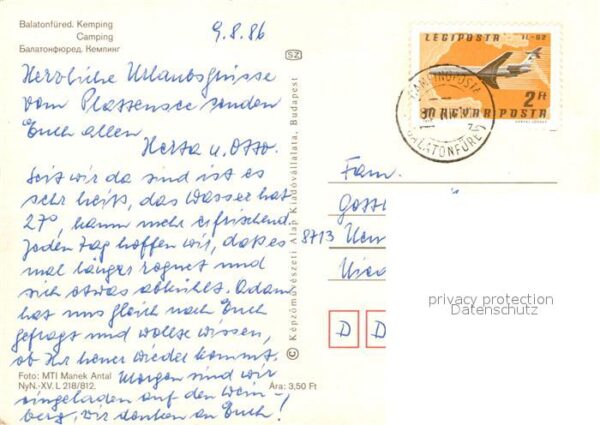 Balatonfüred. Kemping
Camping
Балатонфюред. Кемпинг
9.8.86
SZ
Herzliche Urlaubsgrüsse
vom Plattensee senden
Euch allen
Herta u. Otto.
Seit wir da sind ist es
sehr heiß, das Wasser hat
27°, kaum mehr erfrischend.
Jeden Tag hoffen wir, daß es
mal länger regnet und
sich etwas abkühlt. Adam
hat uns gleich nach Euch
gefragt und wollte wissen,
ob Ihr heuer wieder kommt.
Morgen sind wir
eingeladen auf den Wein-
berg, wir denken an Euch!
Foto: MTI Manek Antal
NyN.-XV. L 218/812.
Ára: 3,50 Ft
© Képzőművészeti Alap Kiadóvállalata, Budapest
LÉGIPOSTA
IL-62
2 Ft
MAGYAR POSTA
BALATONFÜRED
Fam.
8713
D D
privacy protection
Datenschutz